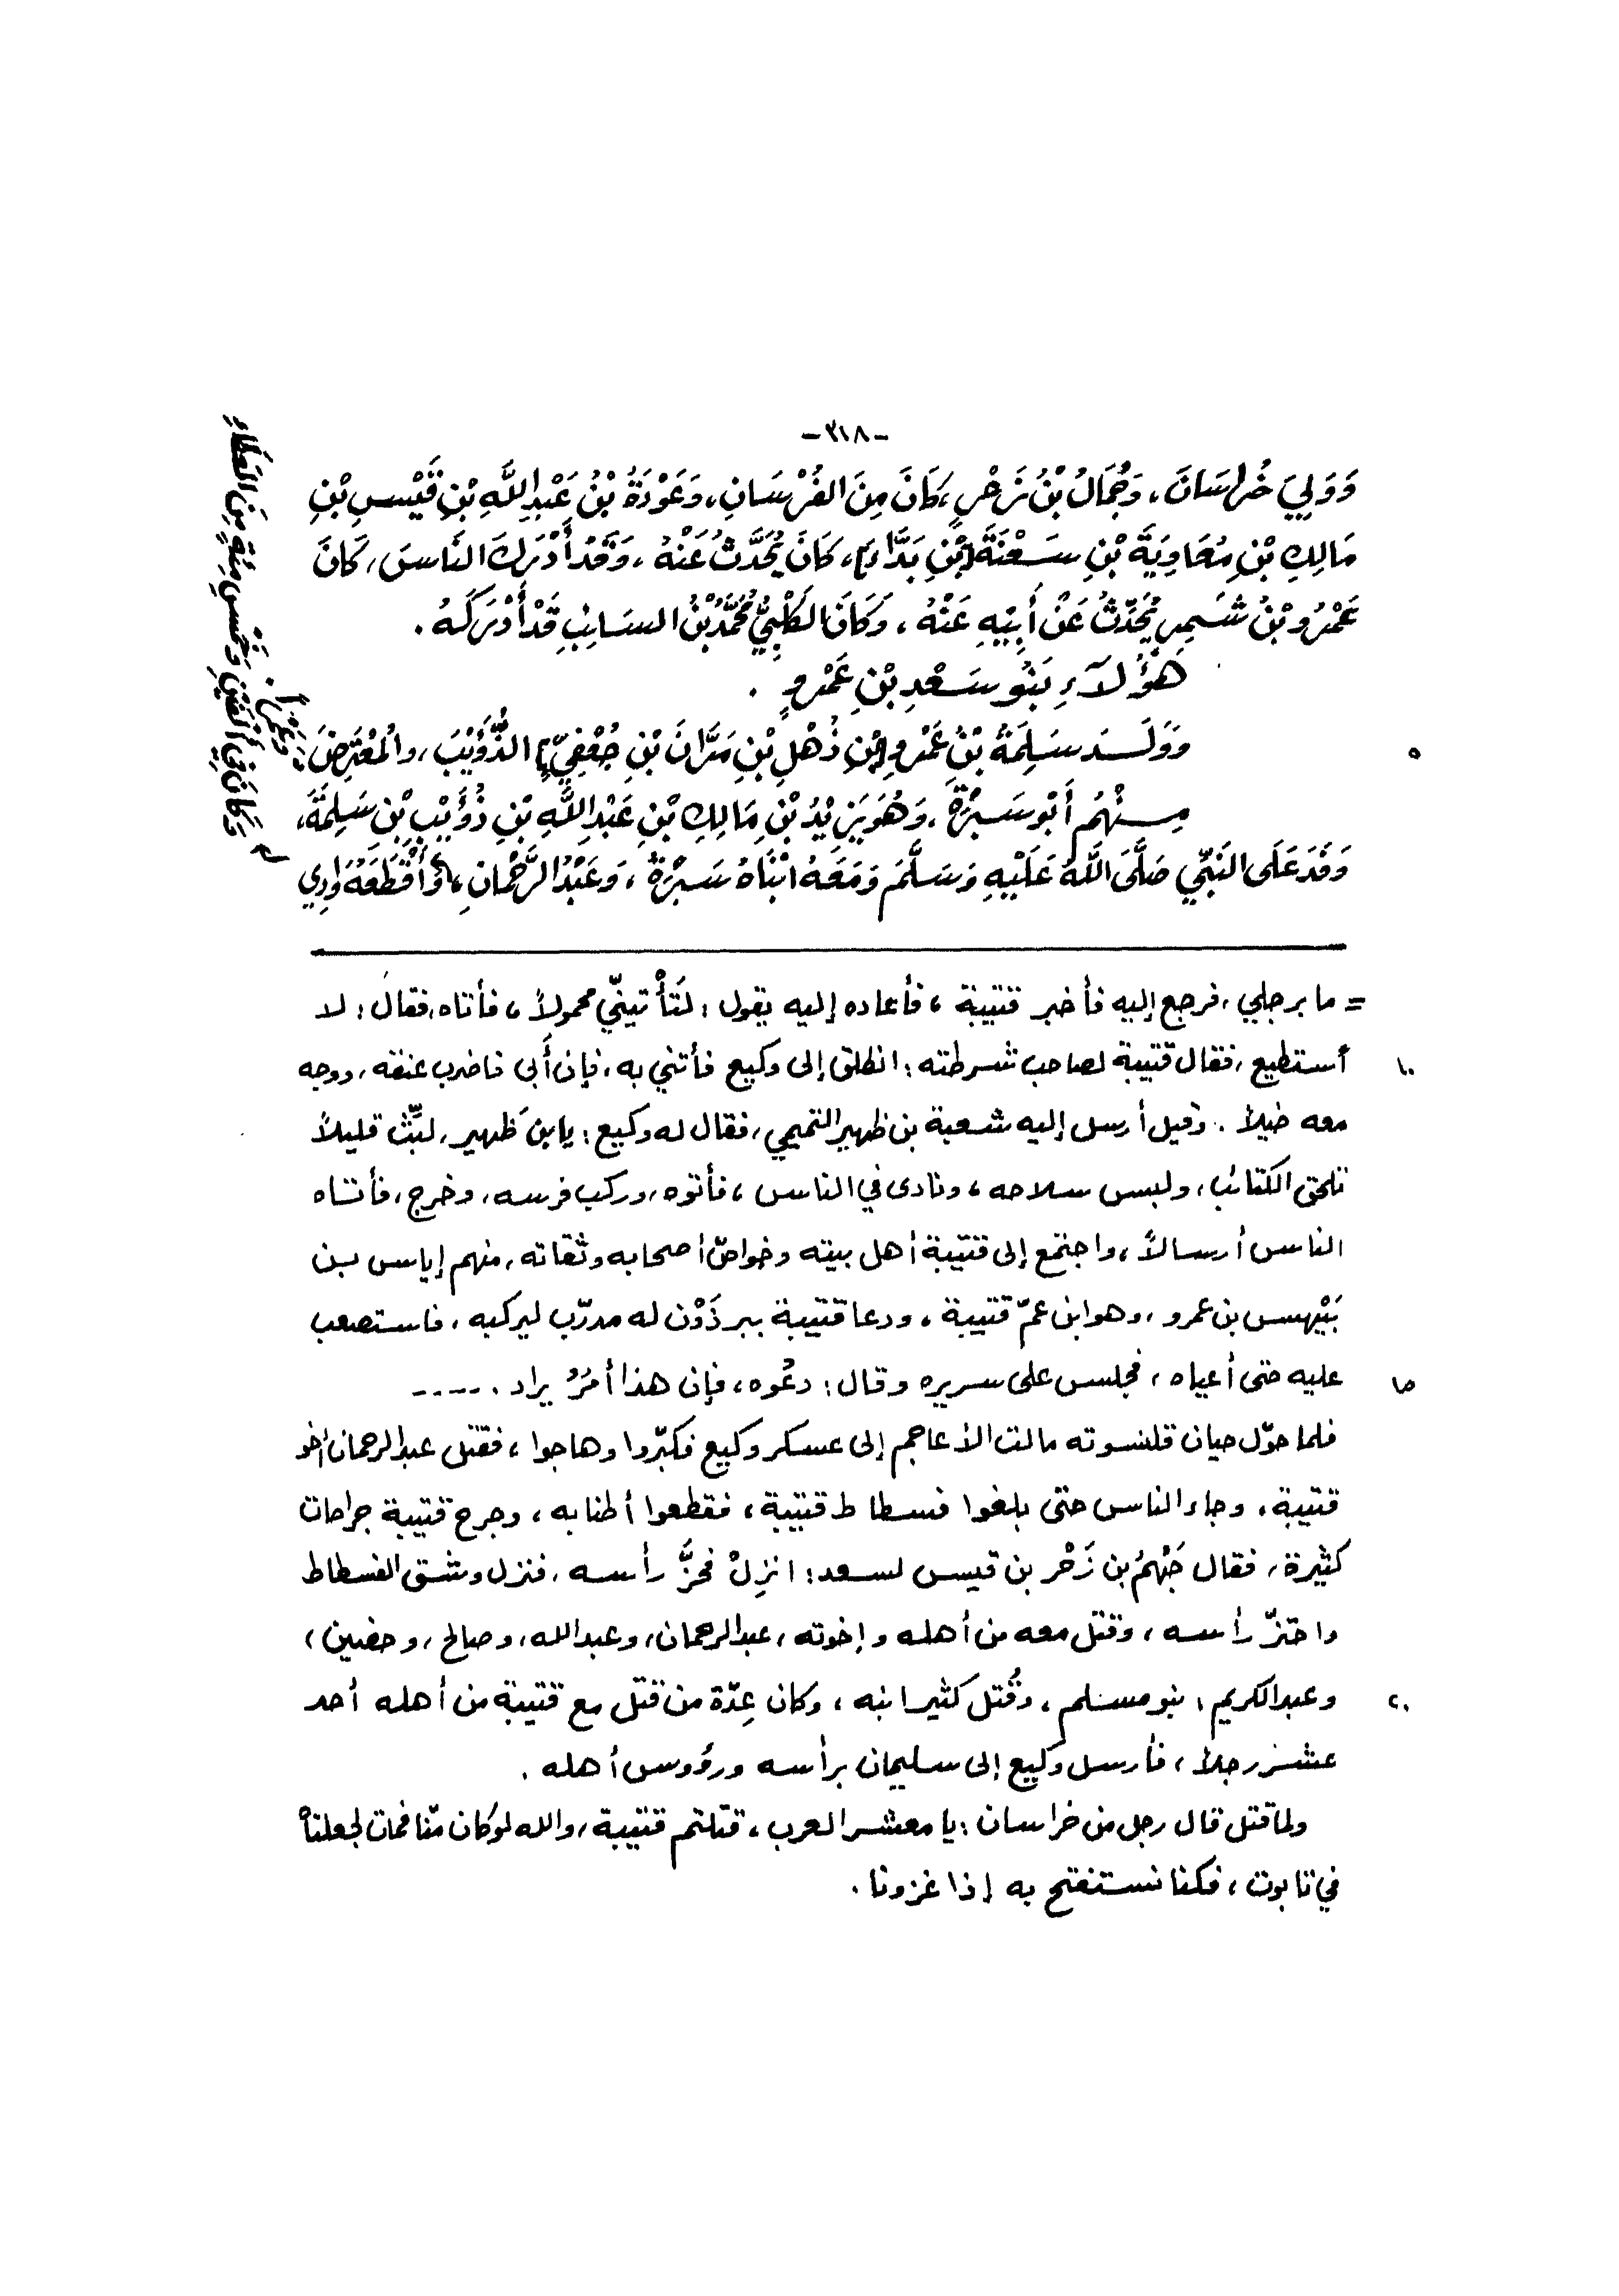 -٣١٨-
وَوَلِيَ خُرَاسَانَ، وَجَمَّالُ بْنُ زَحْرٍ، كَانَ مِنَ الفُرْسَانِ، وَعَوْدَةُ بْنُ عَبْدِاللَّهِ بْنِ قَيْسِ بْنِ
مَالِكِ بْنِ مُعَاوِيَةَ بْنِ سَعْنَةَ [بْنِ بَدَّاءَ]، كَانَ يُحَدَّثُ عَنْهُ، وَقَدْ أَدْرَكَ النَّاسَ، كَانَ
عَمْرُو بْنُ شَمِرٍ يُحَدِّثُ عَنْ أَبِيْهِ عَنْهُ، وَكَانَ الكَلْبِيُّ مُحَمَّدُ بْنُ السَائِبِ قَدْ أَدْرَكَهُ.
هَؤُلَآءِ بَنُو سَعْدِ بْنِ عَمْرٍو.
وَوَلَـدَ سَلِمَةُ بْنُ عَمْرِو [بْنِ ذُهْلِ بْنِ مَرَّانَ بْنِ جُعْفِيٍّ] الذُّؤَيْبَ، والمُعْتَرِضَ،
مِنْهُم أَبُو سَبْرَةَ، وَهُوَ يَزِيْدُ بْنِ مَالِكِ بْنِ عَبْدِاللَّهِ بْنِ ذُؤَيْبِ بْنِ سَلِمَةَ،
وَفَدَ عَلَى النَبِيِّ صَلَّى اللَّهُ عَلَيْهِ وَسَلَّمَ وَمَعَهُ ابْنَاهُ سَبْرَةُ، وَعَبْدُ الرَّحْمَانِ، وَأَقْطَعَهُ وَادِي
وَكَانَ فِي أَلْفَيْنِ وَخَمْسِ مِئَةٍ مِنَ العَطَاءِ
= ما برجلي، فرجع إليه فأخبر قتيبة، فأعاده إليه يقول: لَتَأْتينّي محمولاً، فأتاه، فقال: لا
أستطيع، فقال قتيبة لصاحب شرطته: انطلق إلى وكيع فأتني به، فإن أَبى فاضرب عنقه، ووجه
معه خيلاً. وقيل أرسل إليه شعبة بن ظهير التميمي، فقال له وكيع: يا بنَ ظهير، لبِّث قليلاً
تلحق الكتائب، ولبس سلاحه، ونادى في الناس، فأتوه، وركب فرسه، وخرج، فأتاه
الناس أرسالاً، واجتمع إلى قتيبة أهل بيته وخواصّ أصحابه وثقاته، منهم إياس بـن
بَيْهس بن عمرو، وهو ابن عمّ قتيبة، ودعا قتيبة ببرذَوْن له مدرّب ليركبه، فاستصعب
عليه حتى أعياه، فجلس على سريره وقال: دعُوه، فإن هذا أمرٌ يراد. -----
فلما حوّل حيان قلنسوته مالت الأعاجم إلى عسكر وكيع فكبّروا وهاجوا، فقتل عبدالرحمان أخو
قتيبة، وجاء الناس حتى بلغوا فسطاط قتيبة، فقطعوا أطنابه، وجرح قتيبة جراحات
كثيرة، فقال جَهْمُ بن زَحْر بن قيس لسعد: انزِلْ فحُزَّ رأسه، فنزل وشق الفسطاط
واحتزّ رأسه، وقتل معه من أهله وإخوته، عبدالرحمان، وعبدالله، وصالح، وحصين،
وعبدالكريم، بنو مسلم، وقُتل كثير ابنه، وكان عِدّة من قتل مع قتيبة من أهله أحد
عشر رجلاً، فأرسل وكيع إلى سليمان برأسه ورؤوس أهله.
ولما قتل قال رجل من خراسان: يا معشر العرب، قتلتم قتيبة، والله لو كان منّا فمات لجعلناه
في تابوت، فكنا نستفتح به إذا غزونا.
٥
١٠
١٥
٢٠